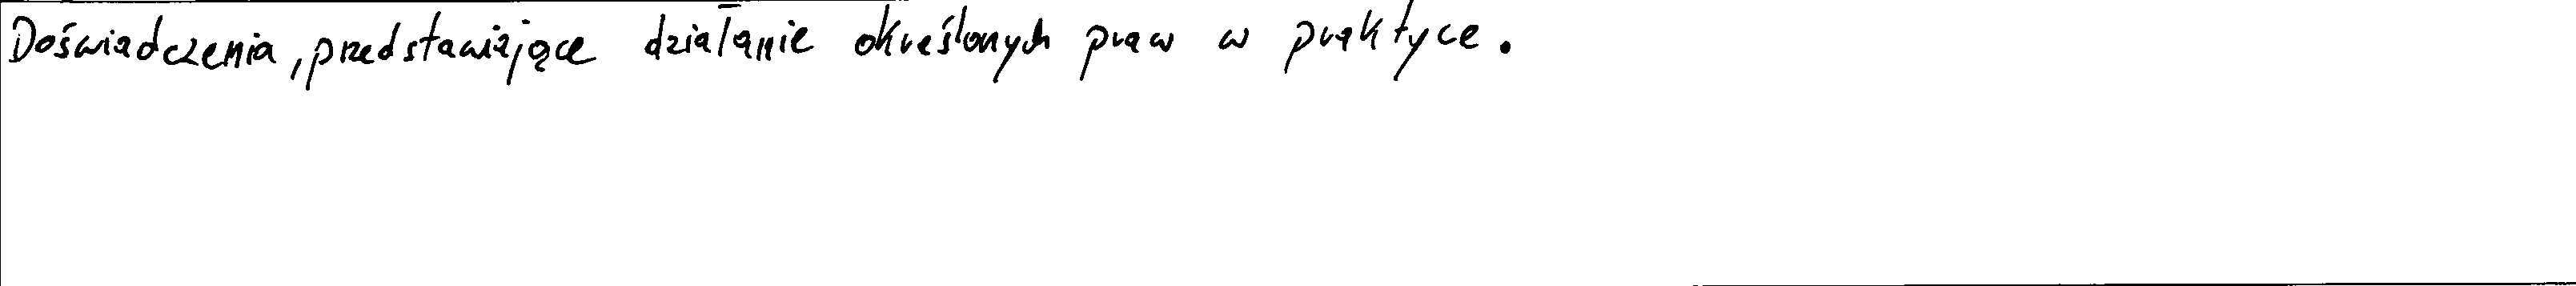 Doświadczenia, przedstawiające działanie określonych praw w praktyce.